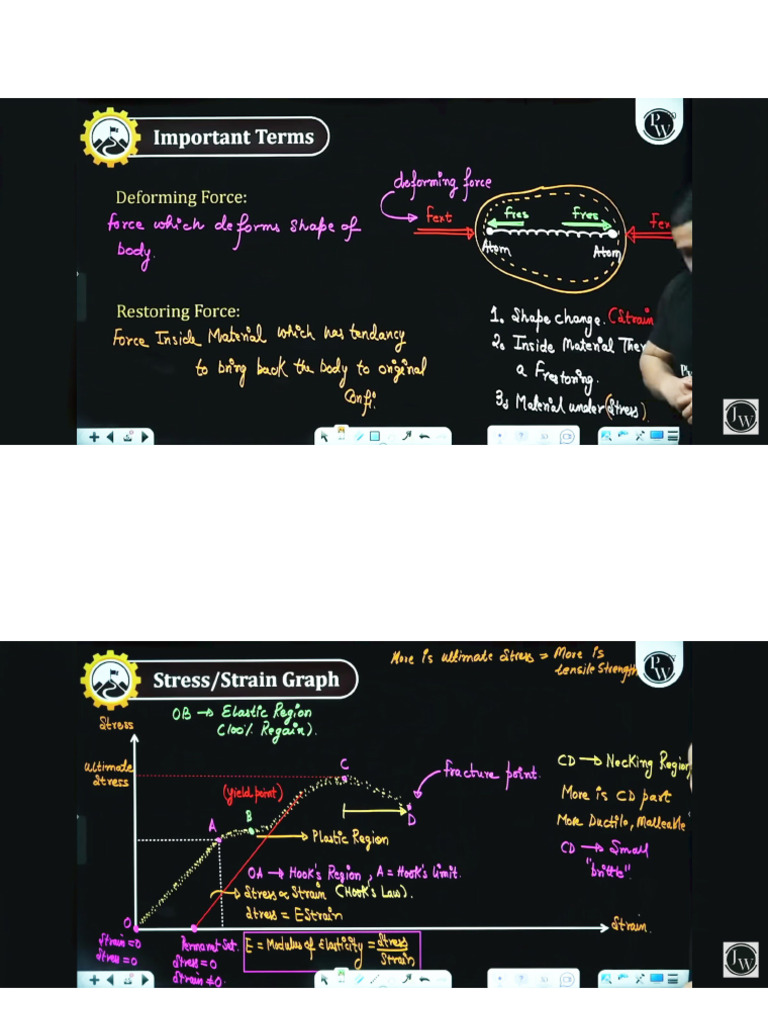 Important Terms
PW
Deforming Force:
force which deforms shape of
body.
deforming force
Fext
fres
fres
Fex
Atom
Atom
Restoring Force:
Force Inside Material which has tendancy
to bring back the body to original
Confi.
1. Shape change. (Strain
2. Inside Material Ther
a Frestoring.
3. Material under (Stress).
JW
Stress/Strain Graph
More is ultimate stress = More is
tensile strength
PW
OB → Elastic Region
(100% Regain).
Stress
ultimate
stress
(yield point)
A
B
C
D
fracture point.
Plastic Region
CD → Necking Region
More is CD part
More Ductile, Malleable
CD → Small
"brittle".
OA → Hook's Region, A = Hook's limit.
Stress ∝ Strain (Hook's Law).
Stress = EStrain
O
Strain.
Strain=0
Stress=0
Permanent Set.
Stress=0
Strain≠0.
E = Modulus of Elasticity = Stress
Strain
JW